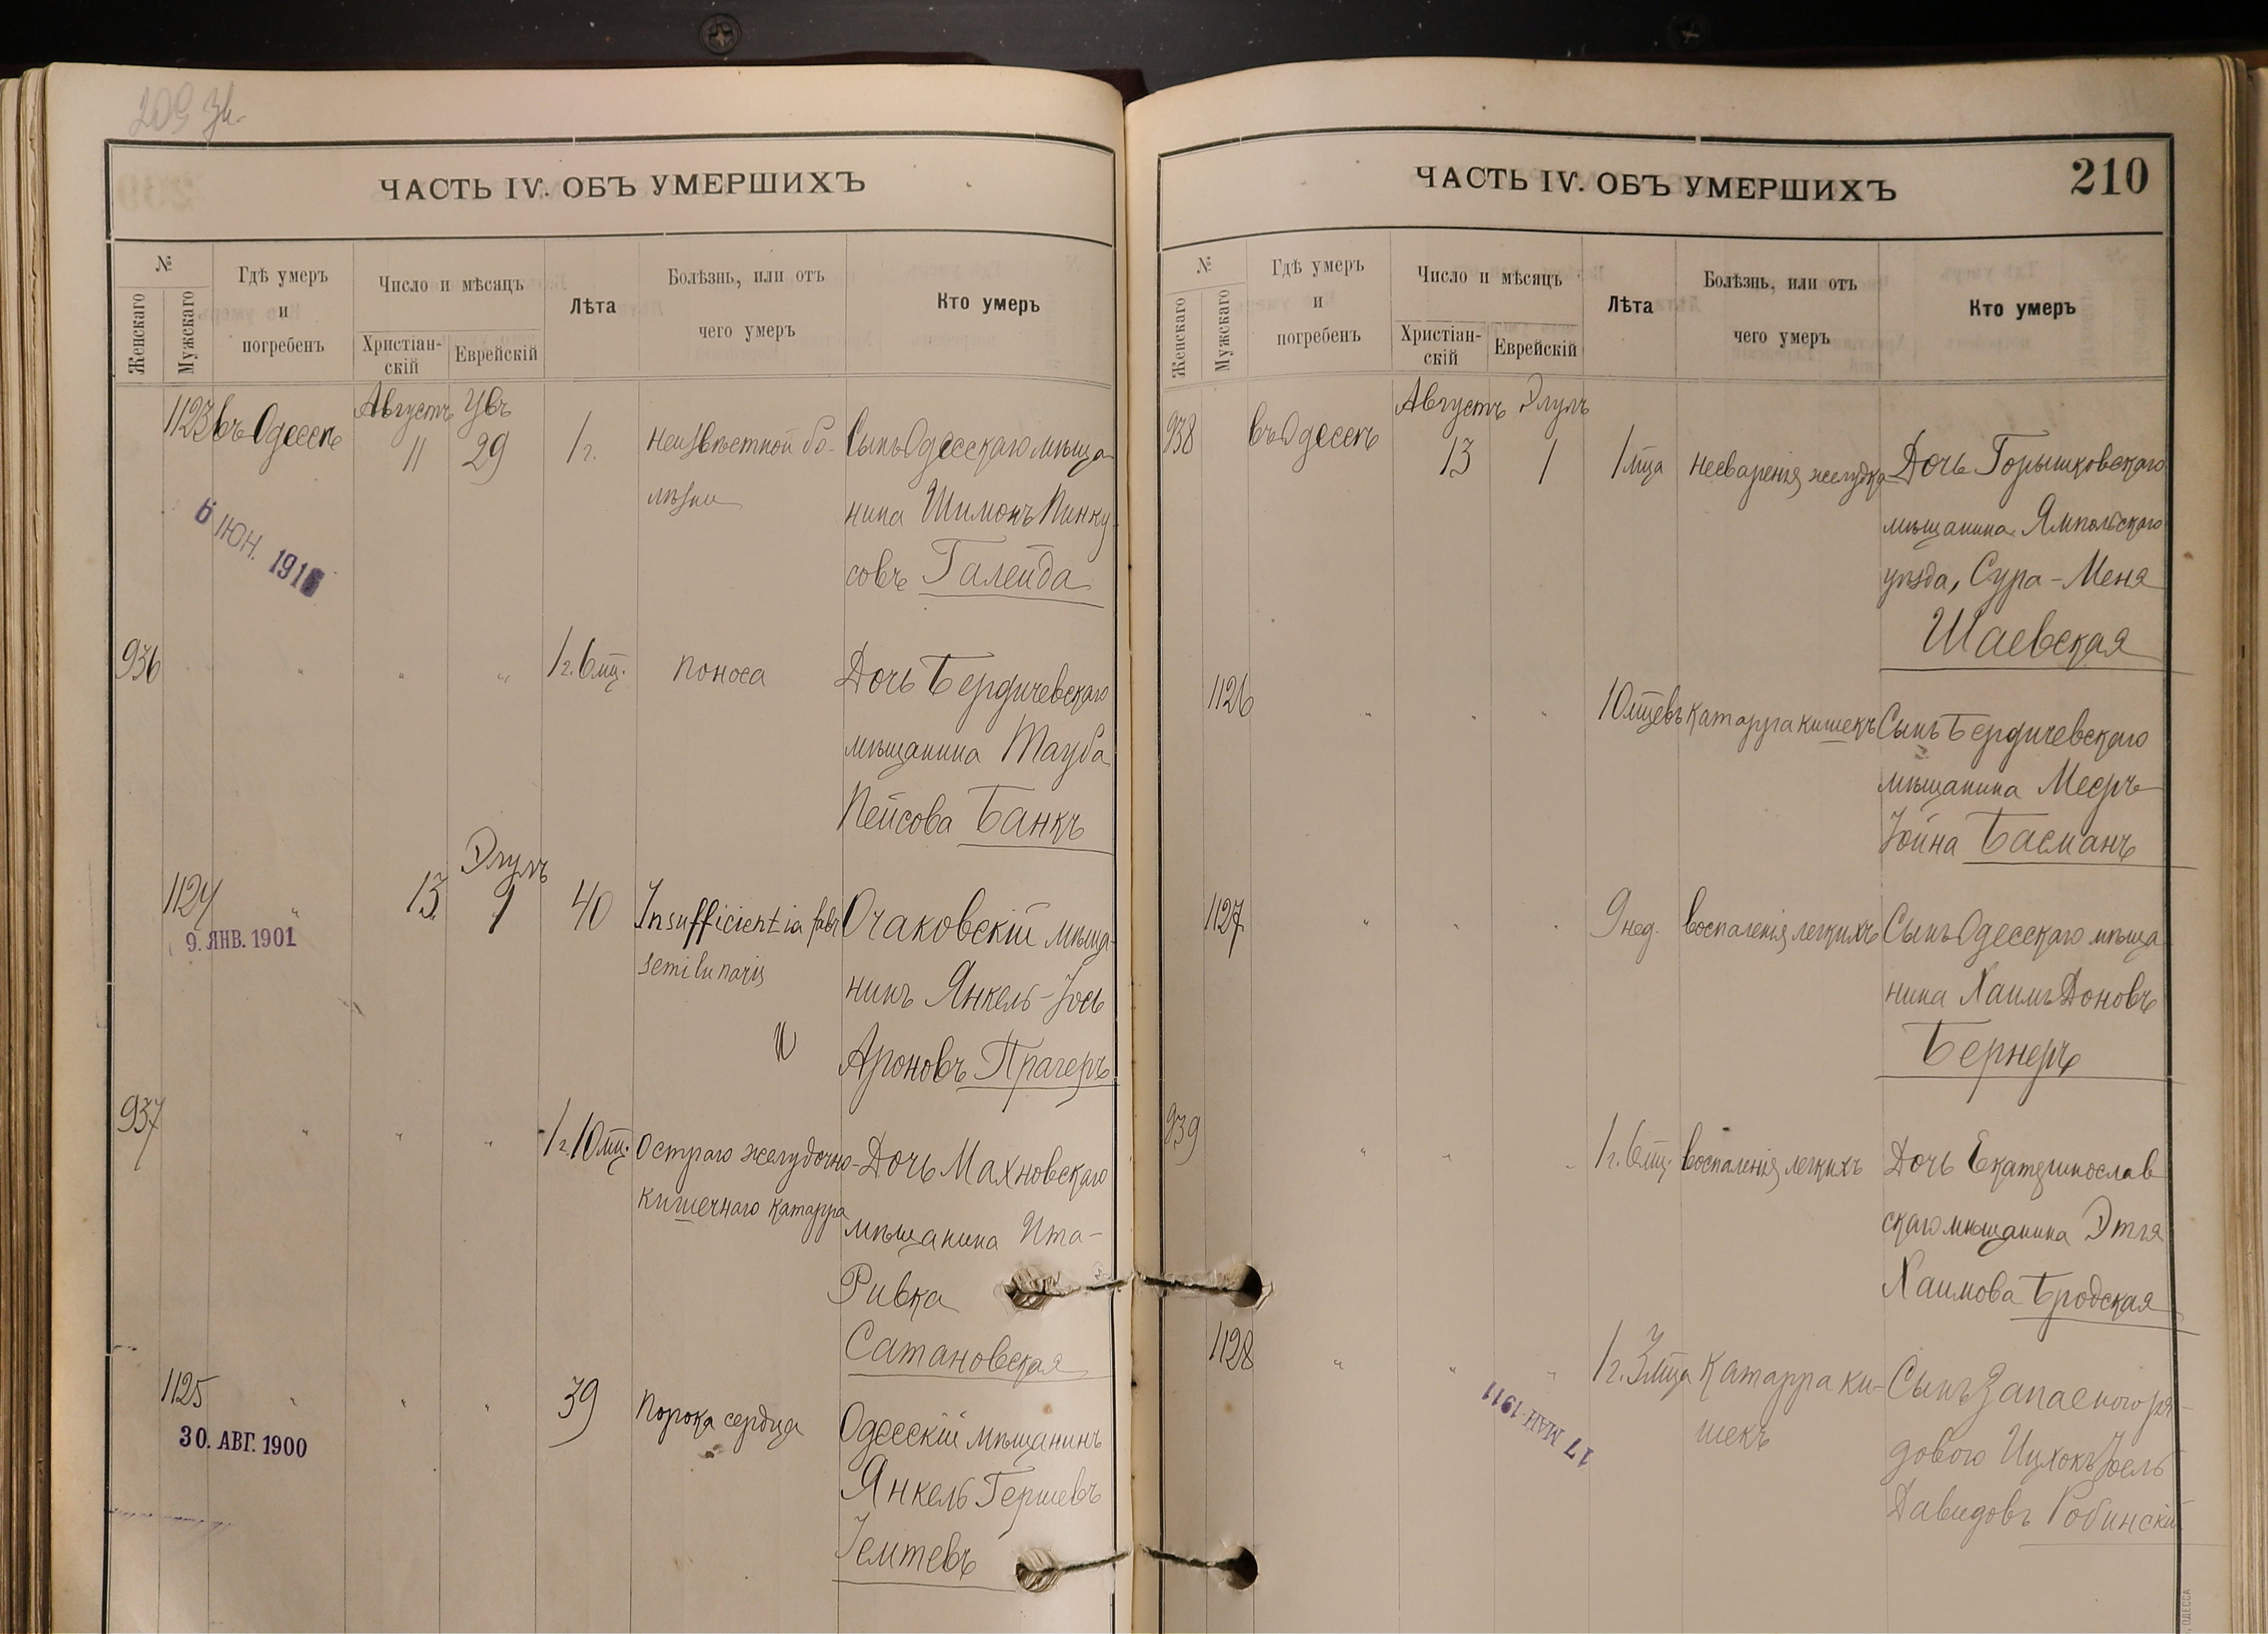 ЧАСТЬ IV. ОБЪ УМЕРШИХЪ
№
Женскаго
Мужскаго
Гдѣ умеръ
и
погребенъ
Число и мѣсяцъ
Христіан-
скій
Еврейскій
Лѣта
Болѣзнь, или отъ
чего умеръ
Кто умеръ
Августъ
1123 въ Одессѣ 11 29 1 г. неизвѣстной бо- Сынъ Одесскаго мѣща-
лѣзни нина Шимонъ Пинку-
совъ Галейда
6 ІЮН. 191
936 " " " 1 г. 6 мц. поноса Дочь Бердичевскаго
мѣщанина Тауба
Пейсова Банкъ
Элулъ
1124 " 13 1 40 Insufficientia Очаковскій мѣща-
semilunaris нинъ Янкель-Іось
Ароновъ Прагеръ
9. ЯНВ. 1901
937 " " " 1 г. 10 мц. Остраго желудочно- Дочь Махновскаго
кишечнаго катарра мѣщанина Ита-
Ривка
Сатановская
1125 " " " 39 порока сердца Одесскій мѣщанинъ
Янкель Гершевъ
30. АВГ. 1900
ЧАСТЬ IV. ОБЪ УМЕРШИХЪ
210
№
Женскаго
Мужскаго
Гдѣ умеръ
и
погребенъ
Число и мѣсяцъ
Христіан-
скій
Еврейскій
Лѣта
Болѣзнь, или отъ
чего умеръ
Кто умеръ
Августъ Элулъ
938 въ Одессѣ 13 1 1 мца несваренія желудка Дочь Горышковскаго
мѣщанина Ямпольскаго
уѣзда, Сура-Меня
Шаевская
1126 " " " 10 мцевъ катарра кишекъ Сынъ Бердичевскаго
мѣщанина Мееръ
Іойна Басманъ
1127 " " " 9 нед. воспаленія легкихъ Сынъ Одесскаго мѣща-
нина Хаимъ Доновъ
Бернеръ
939 " " " 1 г. 6 мц. воспаленія легкихъ Дочь Екатеринослав
скаго мѣщанина Этля
Хаимова Бродская
1128 " " " 1 г. 3 мца катарра ки- Сынъ запаснаго ря-
шекъ дового Ицхокъ Іоель
Давидовъ Робинскій
17 МАЯ 1911